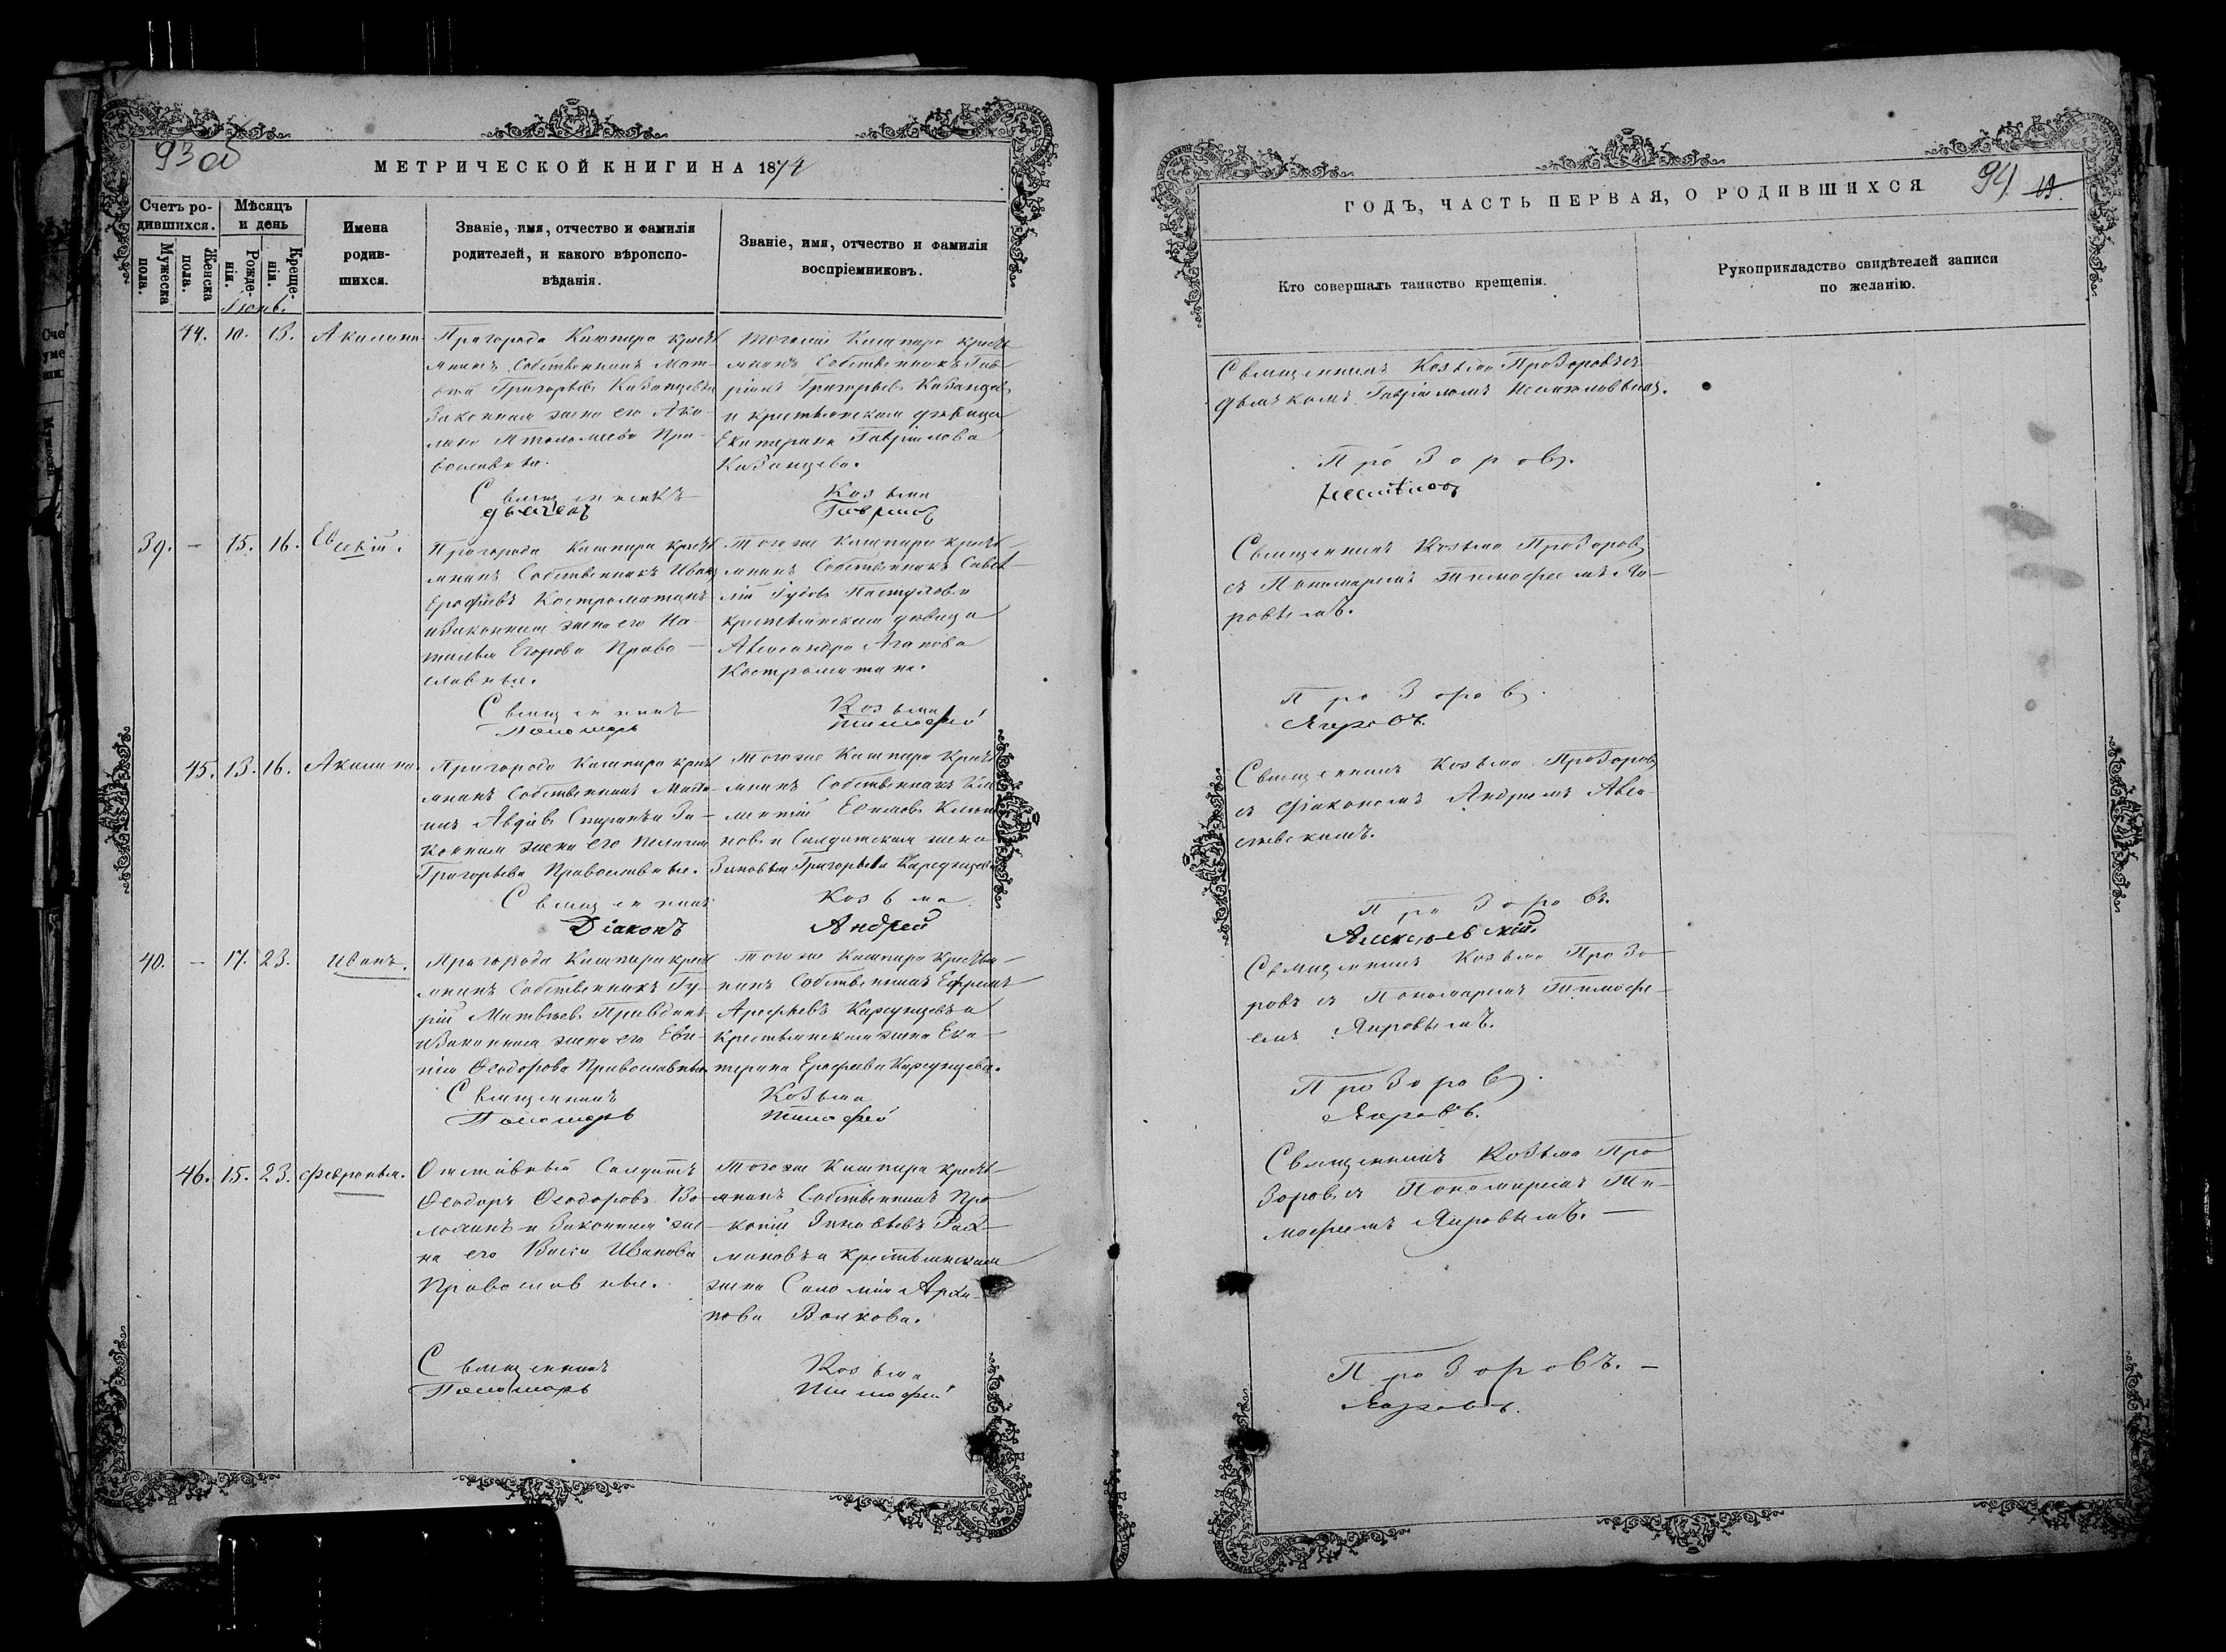 93 об
МЕТРИЧЕСКОЙ КНИГИ НА 1874
Счетъ ро-
дившихся.
Мѣсяцъ
и день
Мужеска
пола.
Женска
пола.
Рожде-
нія.
Креще-
нія.
Имена
родив-
шихся.
Званіе, имя, отчество и фамилія
родителей, и какого вѣроиспо-
вѣданія.
Званіе, имя, отчество и фамилія
воспріемниковъ.
44. 10. 13. Акилина
Пригорода Кашпира крестья
нинъ Собственникъ Мат-
Григорьевъ Казанцевъ и
Законная жена его Аки-
лина Птоломеева Пра-
вославные.
Тогоже Кашпира крестья
нинъ Собственникъ Гав-
ріилъ Григорьевъ Казанцевъ
и крестьянская дѣвица
Екатерина Гавріилова
Казанцева.
Священникъ Козьма
39. - 15. 16.
Пригорода Кашпира крестья
нинъ Собственникъ Иванъ
Ерофѣевъ Костроматинъ
и Законная жена его На-
талья Егорова Право-
славные.
Тогоже Кашпира крестья-
нинъ Собственникъ Савел-
ій Пастуховъ и
крестьянская дѣвица
Александра Агапова
Костроматина.
Священникъ Козьма
Пономарь Тимофей
45. 13. 16. Акилина
Пригорода Кашпира крестья
нинъ Собственникъ
Авдіевъ За-
конная жена его Пелагия
Григорьева Православные.
Тогоже Кашпира крестья
нинъ Собственникъ Кли-
ментій Ефимовъ
новъ и Солдатская жена
Зиновья Григорьева Карсунцева
Священникъ Козьма
Діаконъ Андрей
40. - 17. 23. Иванъ.
Пригорода Кашпира крестья
нинъ Собственникъ Гу-
рій Матвѣевъ
и Законная жена его Евге-
нія Ѳеодорова Православные.
Тогоже Кашпира Крестья-
нинъ Собственникъ Ефремъ
Арефьевъ Карсунцевъ и
Крестьянская жена Ека-
терина Ерофеева Карсунцева.
Священникъ Козьма
Пономарь Тимофей
46. 15. 23. Февронья.
Отставный Солдатъ
Ѳеодоръ Ѳеодоровъ Во-
и Законная же-
на его Васса Иванова
Православные.
Тогоже Кашпира крестья-
нинъ Собственникъ Про-
копій Зиновьевъ Рах-
мановъ и Крестьянская
жена Соломія Архи-
пова Волкова.
Священникъ Козьма
Пономарь Тимофей
94
ГОДЪ, ЧАСТЬ ПЕРВАЯ, О РОДИВШИХСЯ
Кто совершалъ таинство крещенія.
Рукоприкладство свидѣтелей записи
по желанію.
Священникъ Козьма Прозоровъ съ
дьячкомъ Гавріиломъ
Прозоровъ.
Священникъ Козьма Прозоровъ
съ Пономаремъ Тимофеемъ Яи-
ровымъ.
Прозоровъ.
Яировъ.
Священникъ Козьма Прозоровъ
съ Діакономъ Андреемъ Алек-
сѣевскимъ.
Прозоровъ.
Алексѣевскій.
Священникъ Козьма Прозо-
ровъ съ Пономаремъ Тимофе-
емъ Яировымъ.
Прозоровъ.
Яировъ.
Священникъ Козьма Про
зоровъ съ Пономаремъ Ти-
мофеемъ Яировымъ. —
Прозоровъ. —
Яировъ.